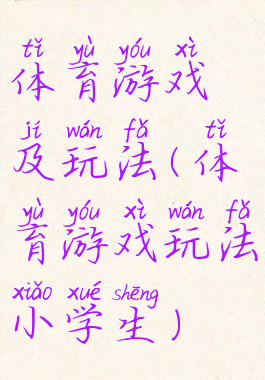 tǐ yù yóu xì
体育游戏
jí wán fǎ tǐ
及玩法(体
yù yóu xì wán fǎ
育游戏玩法
xiǎo xué shēng
小学生)